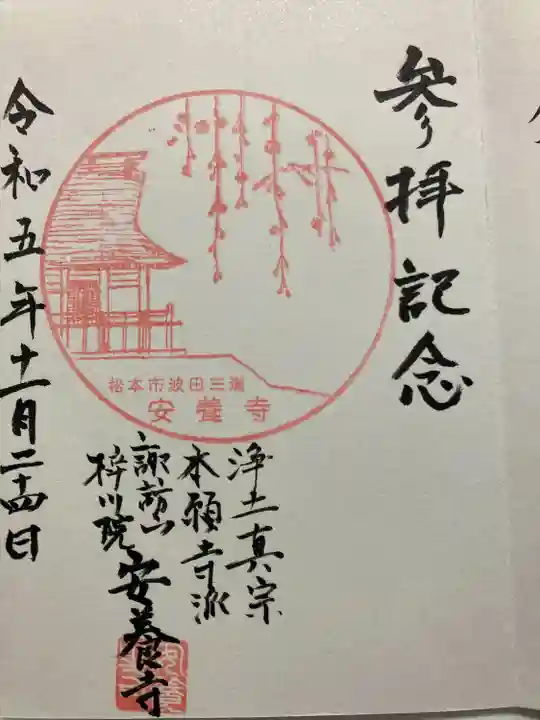 参拝記念
松本市波田三溝
安養寺
浄土真宗
本願寺派
諏訪山
梓川院
安養寺
令和五年十一月二十四日